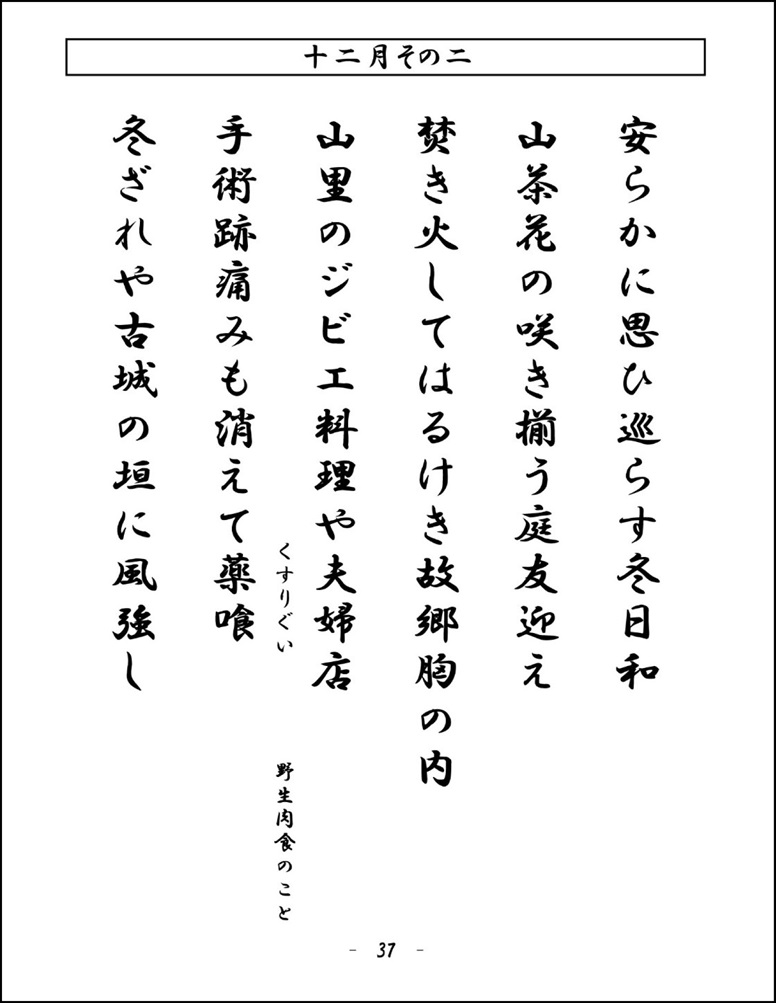 十二月その二
安らかに思ひ巡らす冬日和
山茶花の咲き揃う庭友迎え
焚き火してはるけき故郷胸の内
山里のジビエ料理や夫婦店
くすりぐい
野生肉食のこと
手術跡痛みも消えて薬喰
冬ざれや古城の垣に風強し
- 37 -